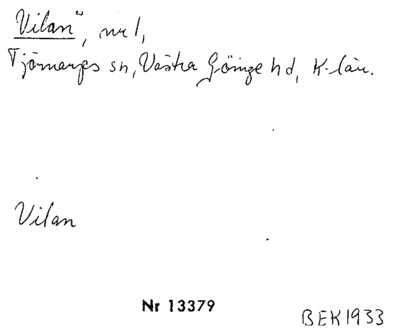 Vilan", nr 1,
Tjörnarps sn, Västra Göinge hd, K-län.
Vilan
Nr 13379
BEK1933